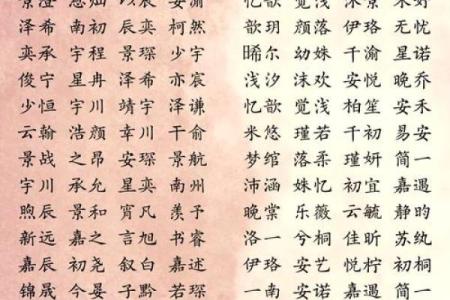 泽希 南初 辰奕 柯然 歆玥 颜落 伊珞 无忧
奕承 宇程 景琛 少宇 晞尔 幼姝 千渝 星诺
俊宁 星冉 泽希 亦宸 浅汐 沐欢 安悦 晚乔
少恒 宇川 靖宇 泽谦 忆歆 觅浅 柏笙 初禾
云翰 浩颜 幸川 千俞 米悠 瑾若 千初 易安
景战 之昂 安琛 景航 梦绾 落柔 瑾妍 简一
宇川 承允 星奕 南州 沛涵 姝忆 初宜 嘉遇
煦辰 景和 宵凡 羡予 晚棠 乐薇 云毓 静昀
新远 嘉之 言旭 书睿 洛一 兮桐 佳昕 苏纨
嘉辰 初尧 叙白 嘉述 伊珞 安艺 悦柠 初桐
锦晟 今晏 子黔 若南 一南 安诺 嘉遇 简一